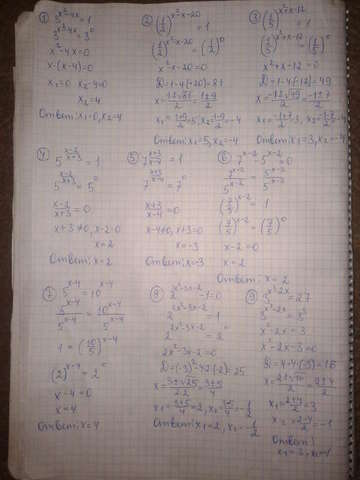 ① 3^{x²-4x} = 1
3^{x²-4x} = 3⁰
x² - 4x = 0
x·(x-4) = 0
x₁=0 x₂-4=0
x₂=4
Ответ: x₁=0, x₂=4
② (1/2)^{x²-x-20} = 1
(1/2)^{x²-x-20} = (1/2)⁰
x²-x-20=0
D=1-4·(-20)=81
x = (1±√81)/2 = (1±9)/2
x₁ = (1+9)/2 = 5, x₂ = (1-9)/2 = -4
Ответ: x₁=5, x₂=-4
③ (1/5)^{x²+x-12} = 1
(1/5)^{x²+x-12} = (1/5)⁰
x²+x-12=0
D=1-4·(-12)=49
x = (-1±√49)/2 = (-1±7)/2
x₁ = (-1+7)/2 = 3, x₂ = (-1-7)/2 = -4
Ответ: x₁=3, x₂=-4
④ 5^{(x-2)/(x+3)} = 1
5^{(x-2)/(x+3)} = 5⁰
(x-2)/(x+3) = 0
x+3≠0, x-2=0
x=2
Ответ: x=2
⑤ 7^{(x+3)/(x-4)} = 1
7^{(x+3)/(x-4)} = 7⁰
(x+3)/(x-4) = 0
x-4≠0, x+3=0
x=-3
Ответ: x=-3
⑥ 7^{x-2} - 5^{x-2} = 0
7^{x-2}/5^{x-2} = 5^{x-2}/5^{x-2}
(7/5)^{x-2} = 1
(7/5)^{x-2} = (7/5)⁰
x-2=0
x=2
Ответ: x=2
⑦ 5^{x-4} = 10^{x-4}
5^{x-4}/5^{x-4} = 10^{x-4}/5^{x-4}
1 = (10/5)^{x-4}
(2)^{x-4} = 2⁰
x-4=0
x=4
Ответ: x=4
⑧ 2^{2x²-3x-2} - 1 = 0
2^{2x²-3x-2} = 1
2^{2x²-3x-2} = 2⁰
2x²-3x-2=0
D=(-3)²-4·2·(-2)=25
x = (3±√25)/4 = (3±5)/4
x₁ = (3+5)/4 = 2, x₂ = (3-5)/4 = -1/2
Ответ: x₁=2, x₂=-1/2
⑨ 3^{x²-2x} = 27
3^{x²-2x} = 3³
x²-2x=3
x²-2x-3=0
D=4-4·(-3)=16
x = (2±√16)/2 = (2±4)/2
x₁ = (2+4)/2 = 3
x₂ = (2-4)/2 = -1
Ответ:
x₁=3, x₂=-1